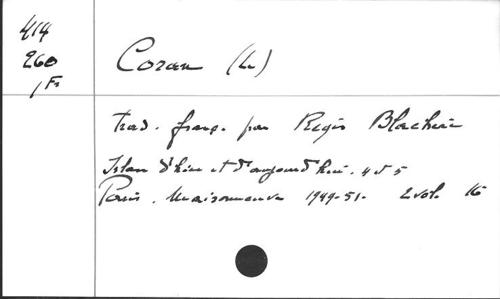 414
260
1 Fr
Coran (Le)
Trad. franç. par Régis Blachère
Islam d'hier et d'aujourd'hui. 4 et 5
Paris. Maisonneuve 1949-51. 2 vol. 16